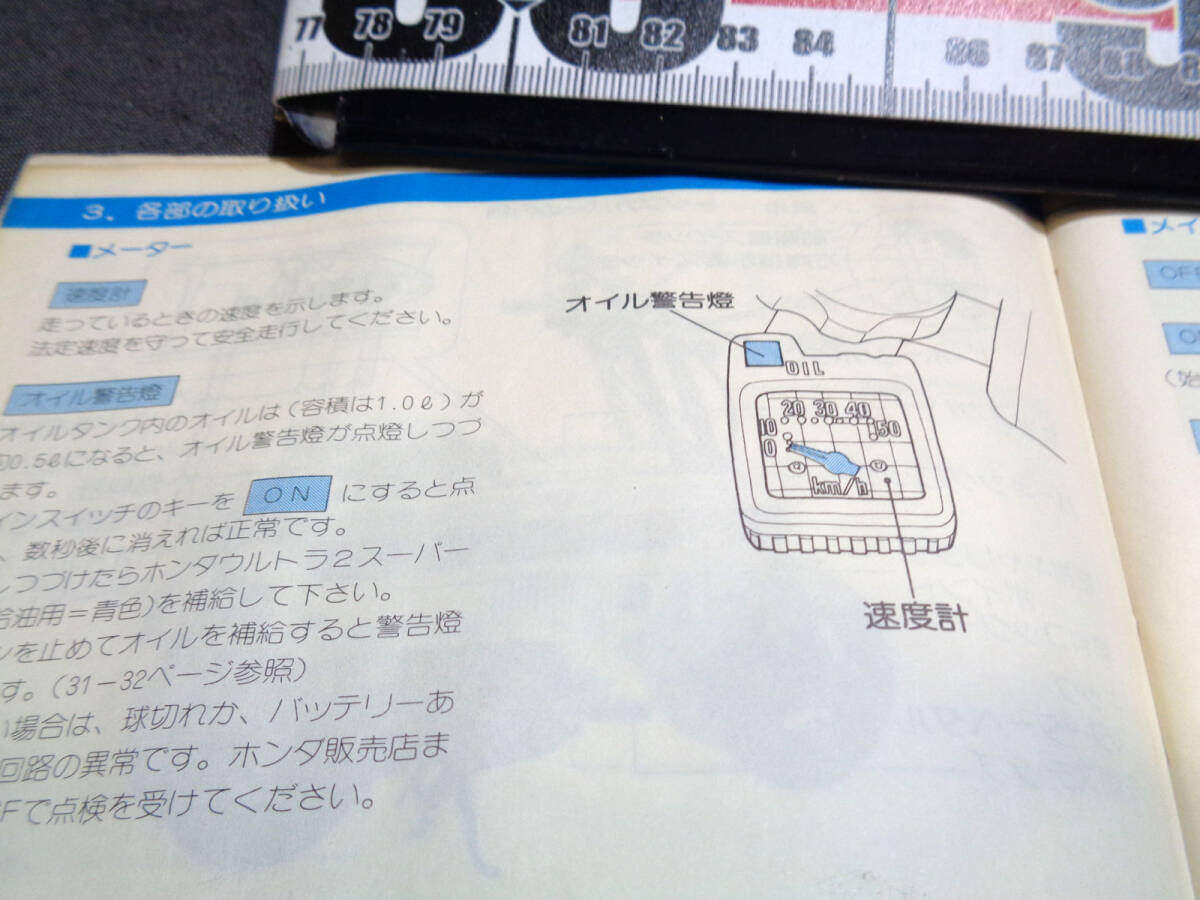 77 78 79 81 82 83 84 86 87
3、各部の取り扱い
■メーター
速度計
走っているときの速度を示します。
法定速度を守って安全走行してください。
オイル警告燈
オイルタンク内のオイルは(容積は1.0ℓ)が
0.5ℓになると、オイル警告燈が点燈しつづ
ます。
インスイッチのキーを ON にすると点
、数秒後に消えれば正常です。
しつづけたらホンダウルトラ2スーパー
給油用=青色)を補給して下さい。
ンを止めてオイルを補給すると警告燈
す。(31-32ページ参照)
い場合は、球切れか、バッテリーあ
回路の異常です。ホンダ販売店ま
Fで点検を受けてください。
オイル警告燈
OIL
20 30 40
10 50
0
km/h
速度計
■メイ
OF
(始